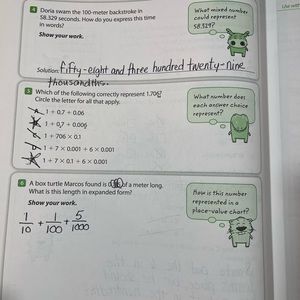 4 Doria swam the 100-meter backstroke in
58.329 seconds. How do you express this time
in words?
Show your work.
What mixed number
could represent
58.329?
Solution: fifty-eight and three hundred twenty-nine
thousandths.
5 Which of the following correctly represent 1.706?
Circle the letter for all that apply.
What number does
each answer choice
represent?
1 + 0.7 + 0.06
1 + 0.7 + 0.006
1 + 706 × 0.1
1 + 7 × 0.001 + 6 × 0.001
1 + 7 × 0.1 + 6 × 0.001
6 A box turtle Marcos found is of a meter long.
What is this length in expanded form?
Show your work.
How is this number
represented in a
place-value chart?
1/10 + 1/100 + 5/1000